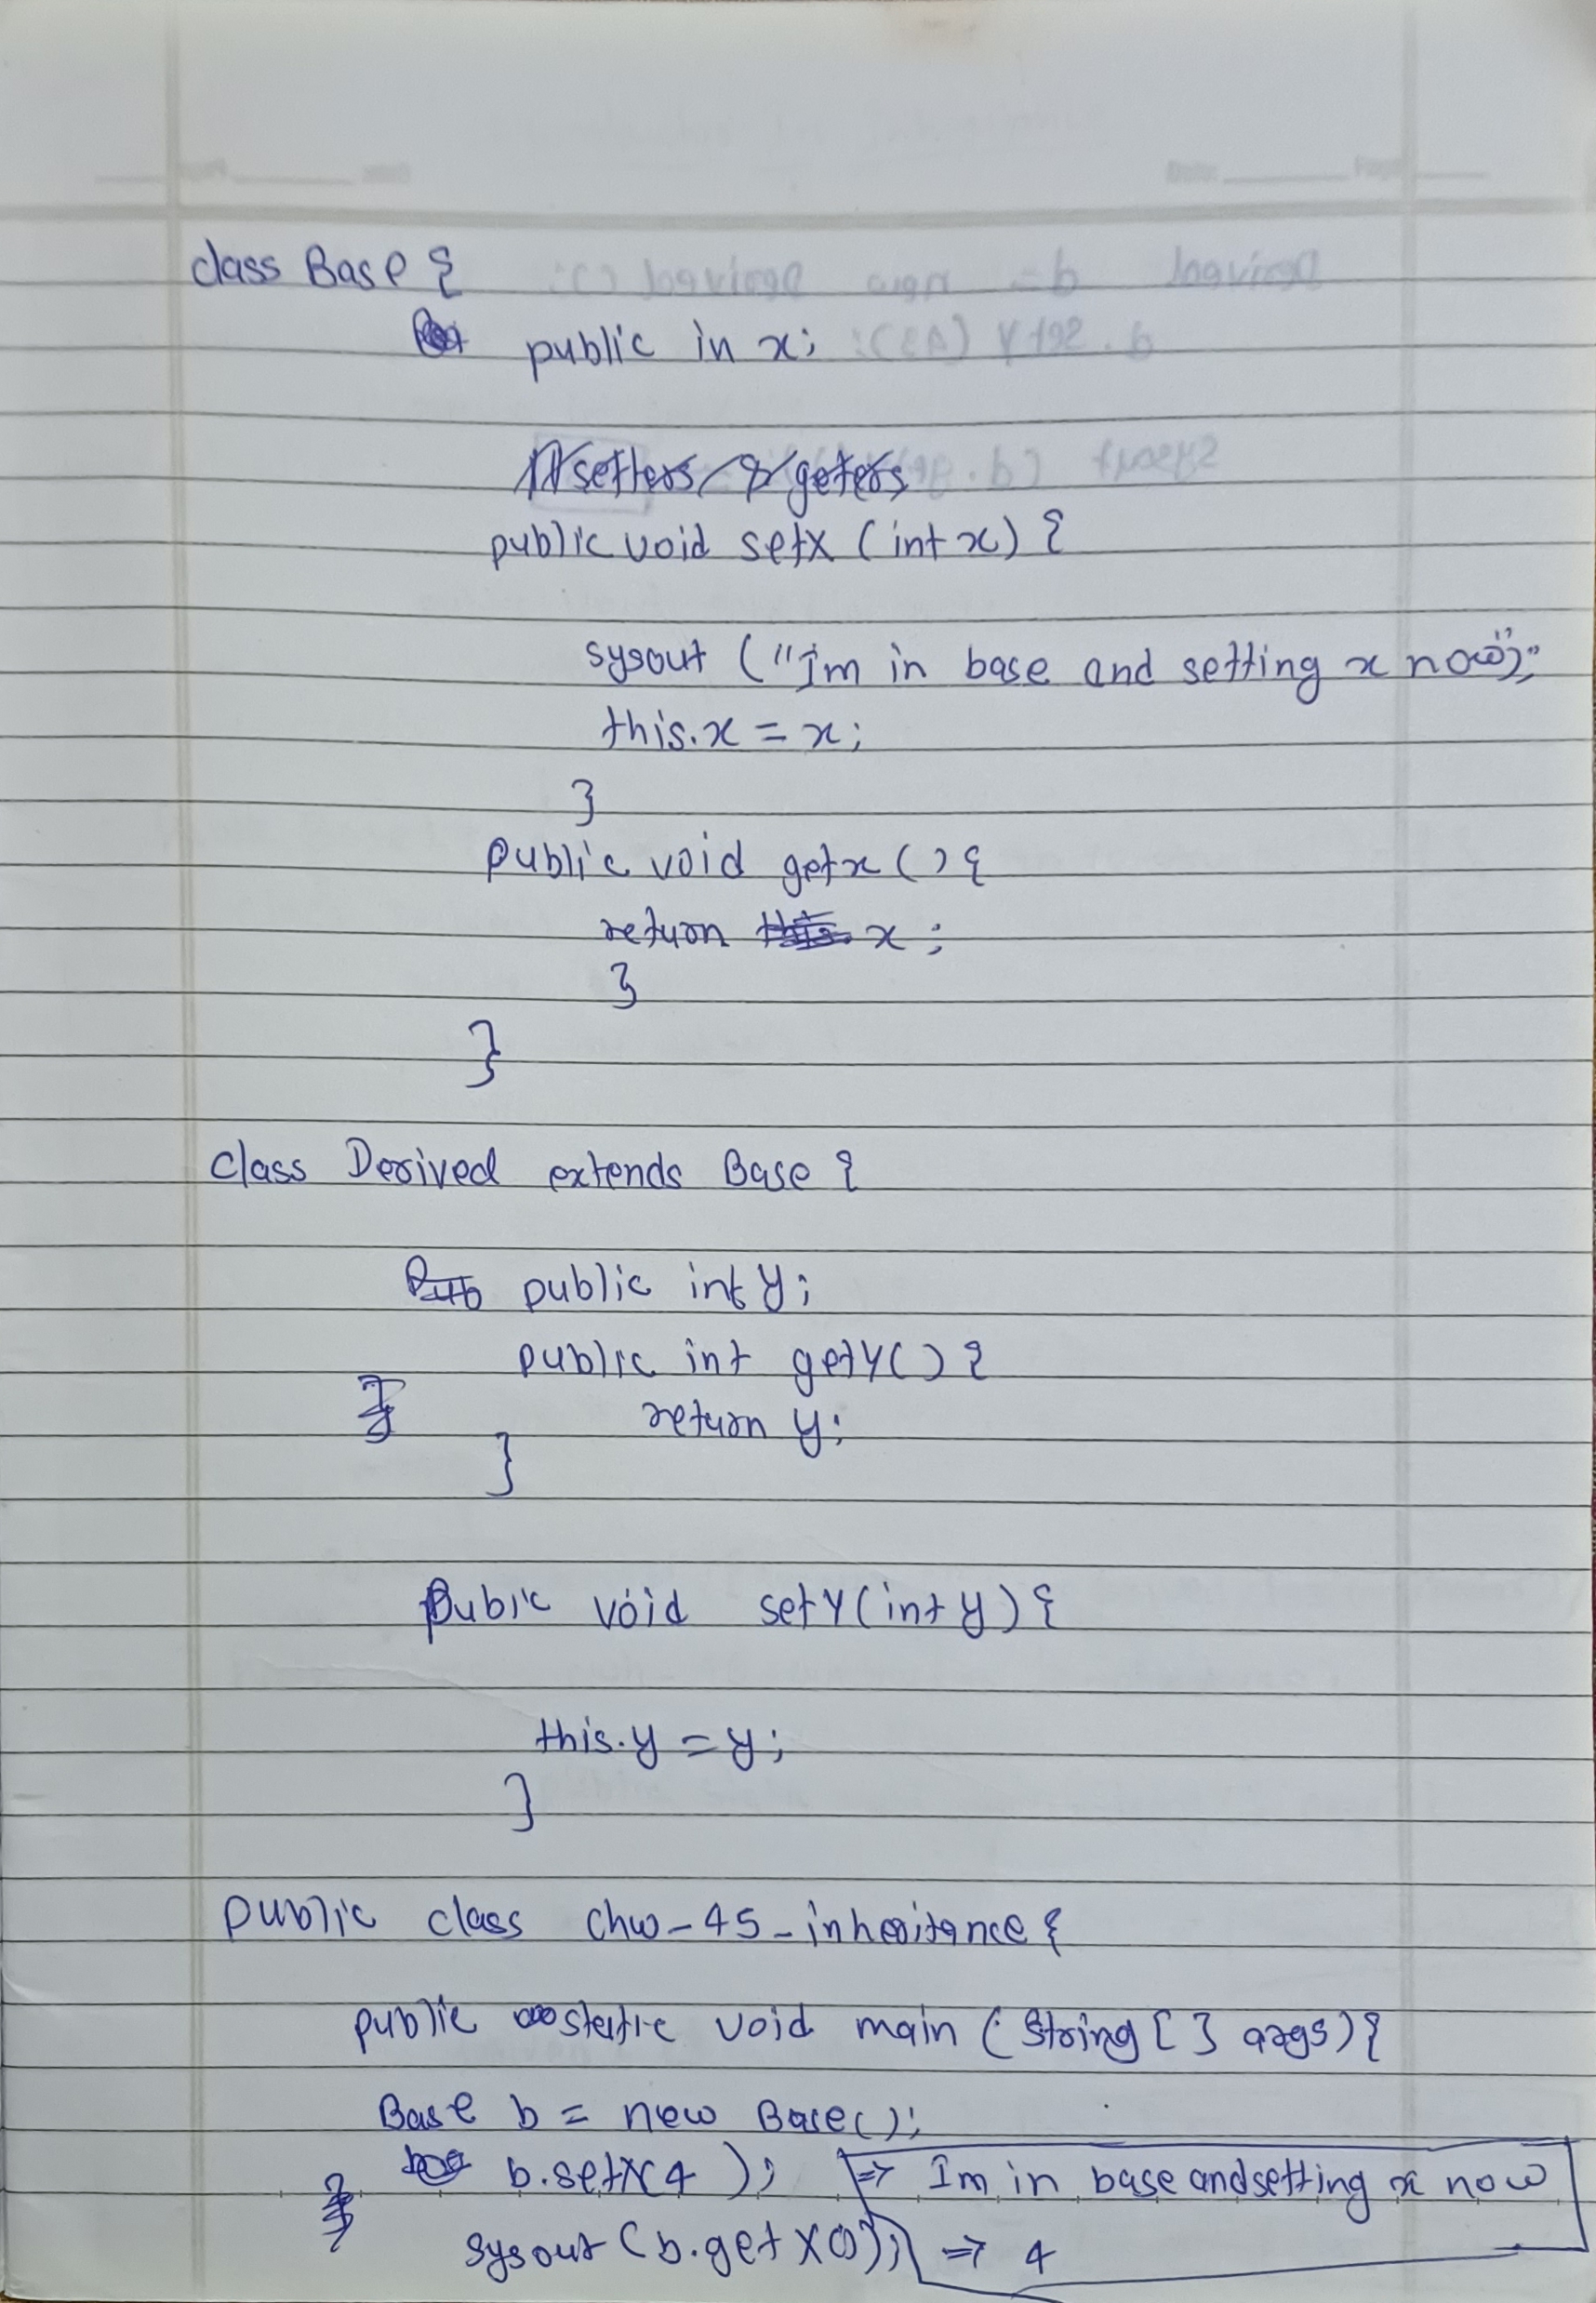 class Base {
public in x;
public void setX (int x) {
sysout ("Im in base and setting x now");
this.x = x;
}
public void getx () {
return x ;
}
}
class Derived extends Base {
public int y;
public int getY() {
return y;
}
Pubic void setY(int y) {
this.y = y;
}
public class chw-45-inheritance {
public static void main (String [] args) {
Base b = new Base();
b.setX(4 ); => Im in base and setting x now
sysout (b.get X()); => 4